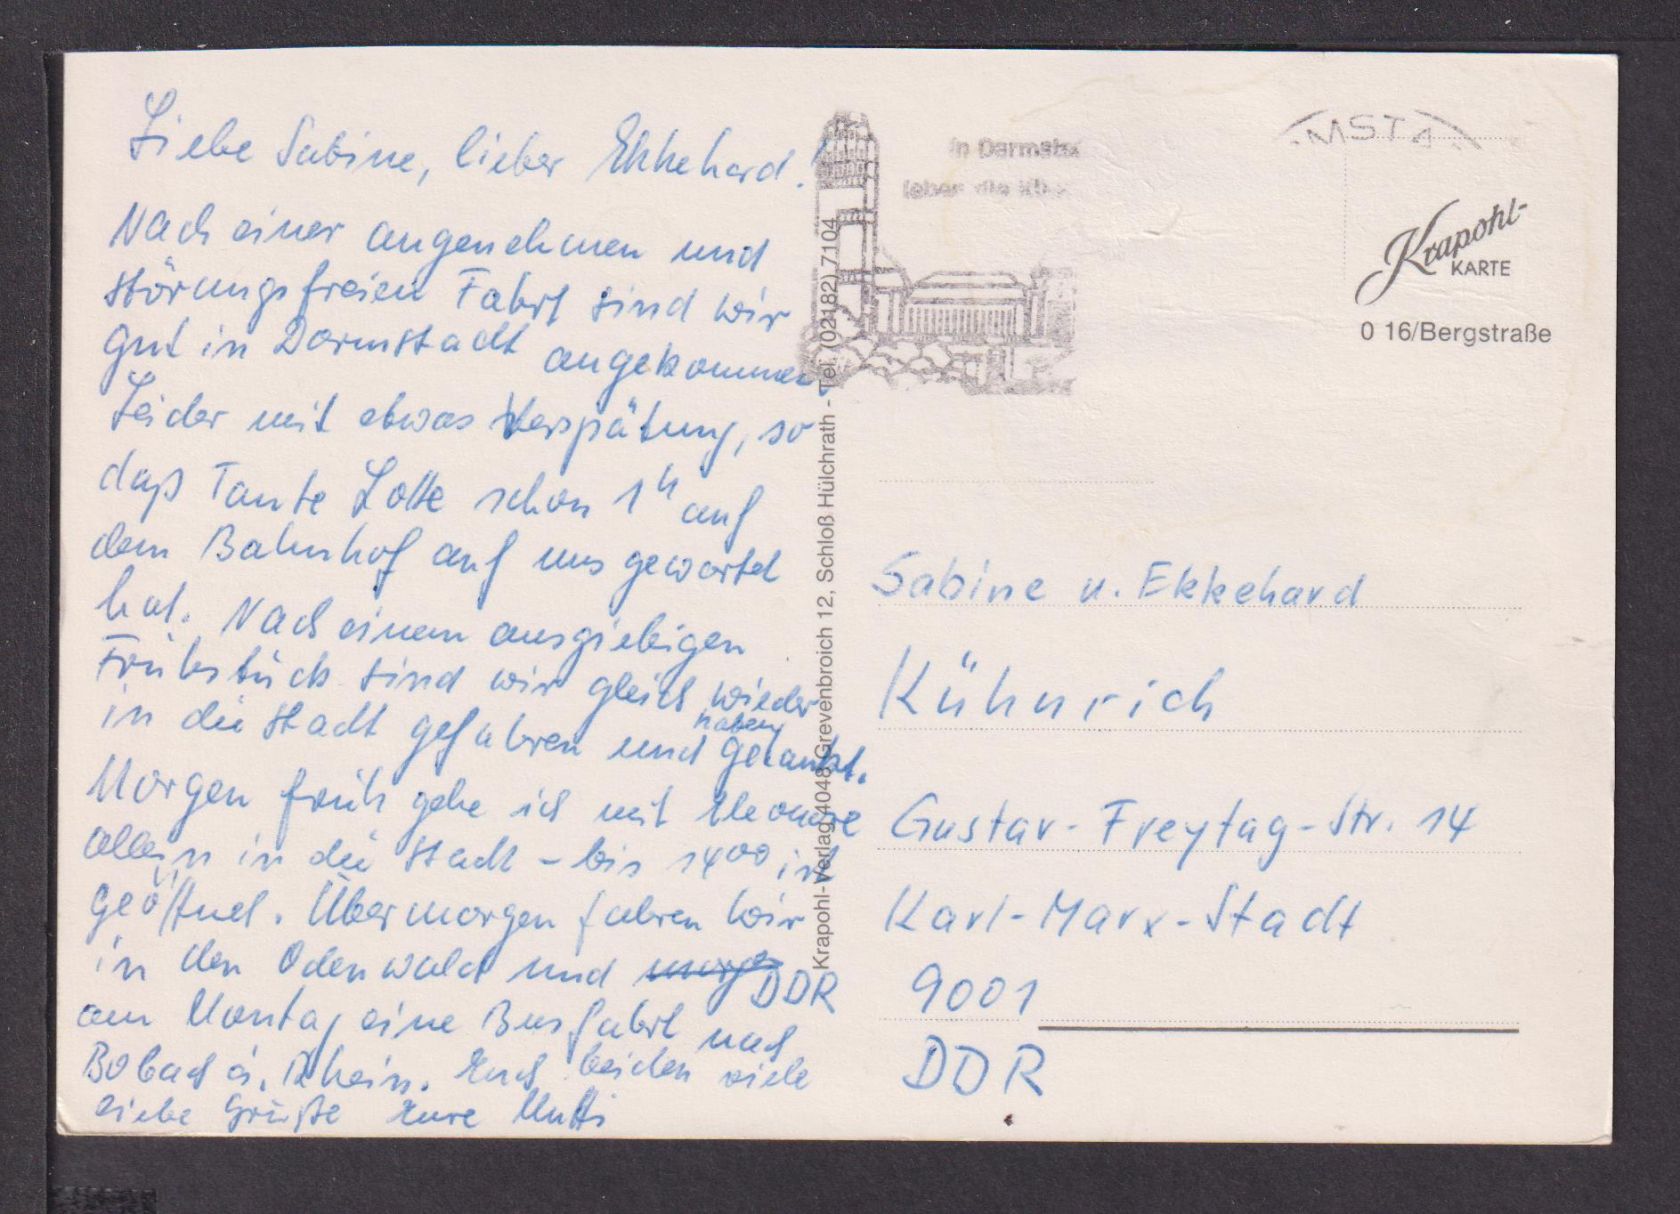 Liebe Sabine, lieber Ekkehard!
Nach einer angenehmen und
störungsfreien Fahrt sind wir
gut in Darmstadt angekommen.
Leider mit etwas Verspätung, so
daß Tante Lotte schon 1h auf
dem Bahnhof auf uns gewartet
hat. Nach einem ausgiebigen
Frühstück sind wir gleich wieder
in die Stadt gefahren und haben getankt.
Morgen früh gehe ich mit
allein in die Stadt – bis 14 00 ist
geöffnet. Übermorgen fahren wir
in den Odenwald und
am Montag eine Busfahrt nach
a. Rhein. Euch beiden viele
liebe Grüße Eure Mutti
DDR
Krapohl-Verlag, 4048 Grevenbroich 12, Schloß Hülchrath - Tel. (02182) 7104
in Darmsta
leben die Kü
MSTA
Krapohl-
KARTE
0 16/Bergstraße
Sabine u. Ekkehard
Kühnrich
Gustav-Freytag-Str. 14
Karl-Marx-Stadt
9001
DDR